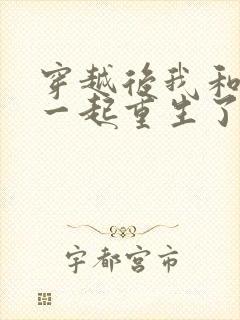 穿越后我和
一起重生了
宇都宫市